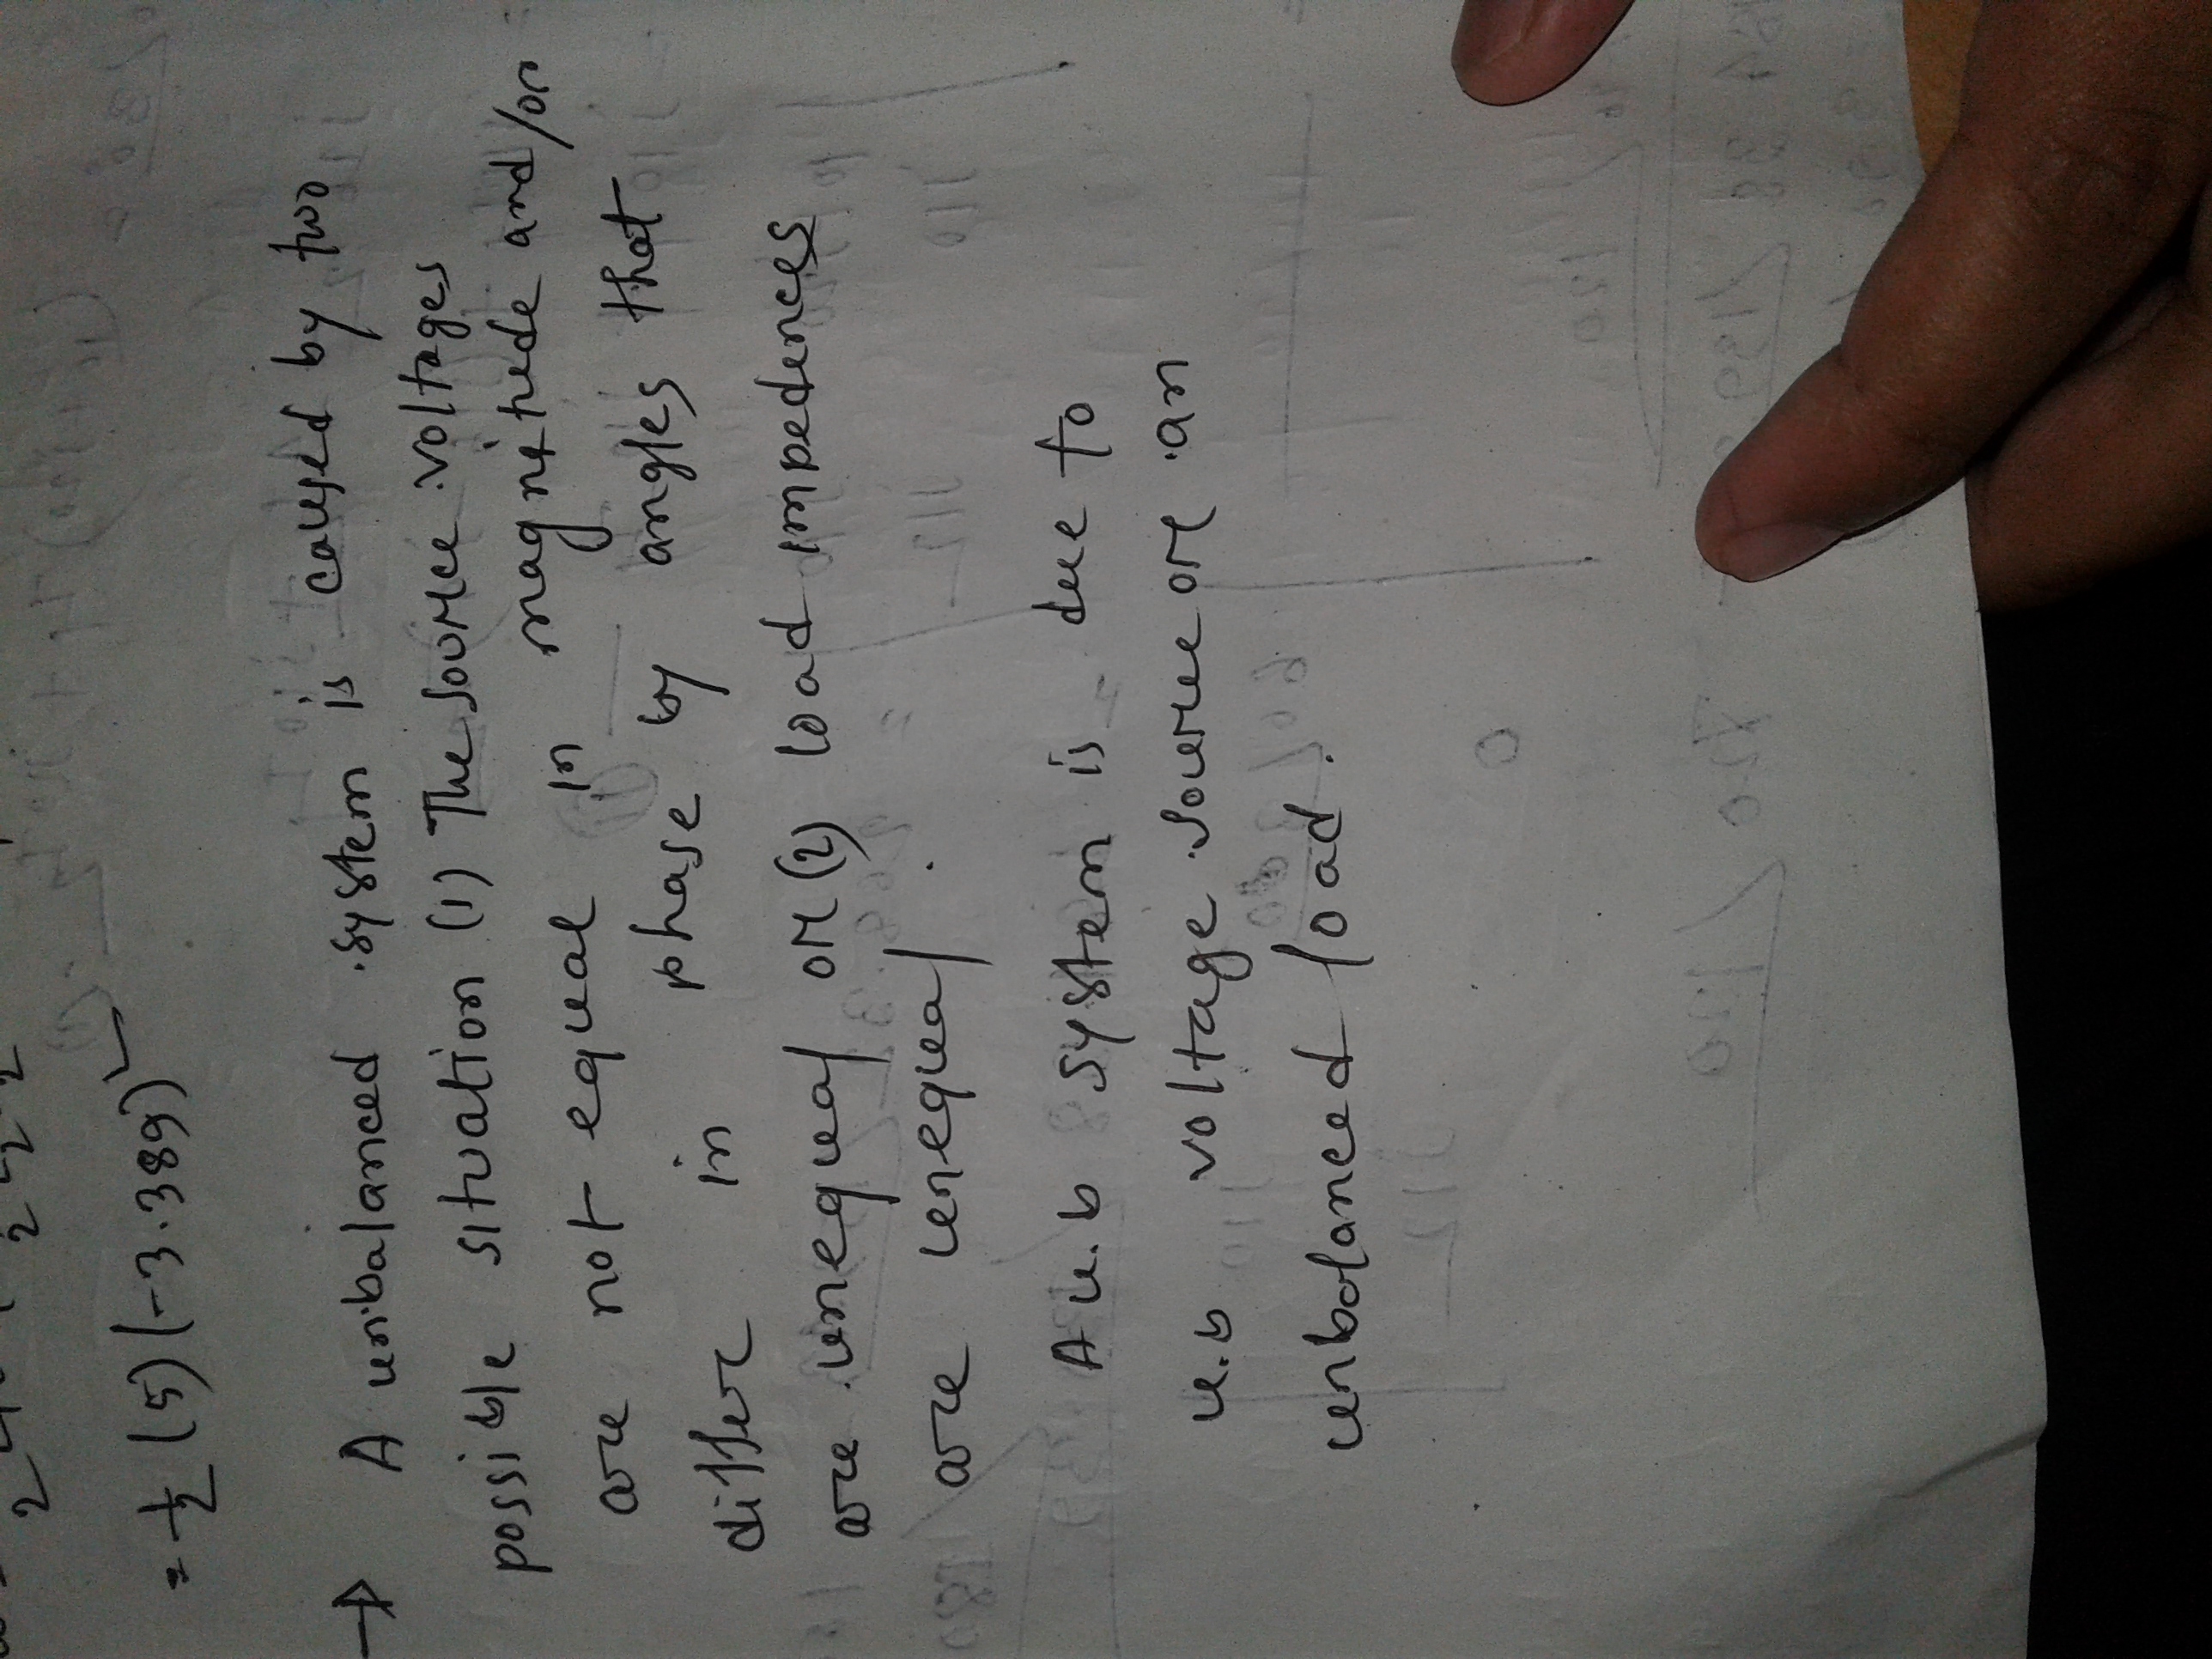 = 1/2 (5) (-3.389)²
→ A unbalanced system is caused by two
possible situation (1) The source voltages
are not equal in magnitude and/or
differ in phase by angles that
are unequal or (2) load impedences
are unequal.
A u.b system is due to
u.b voltage source or an
unbalanced load.